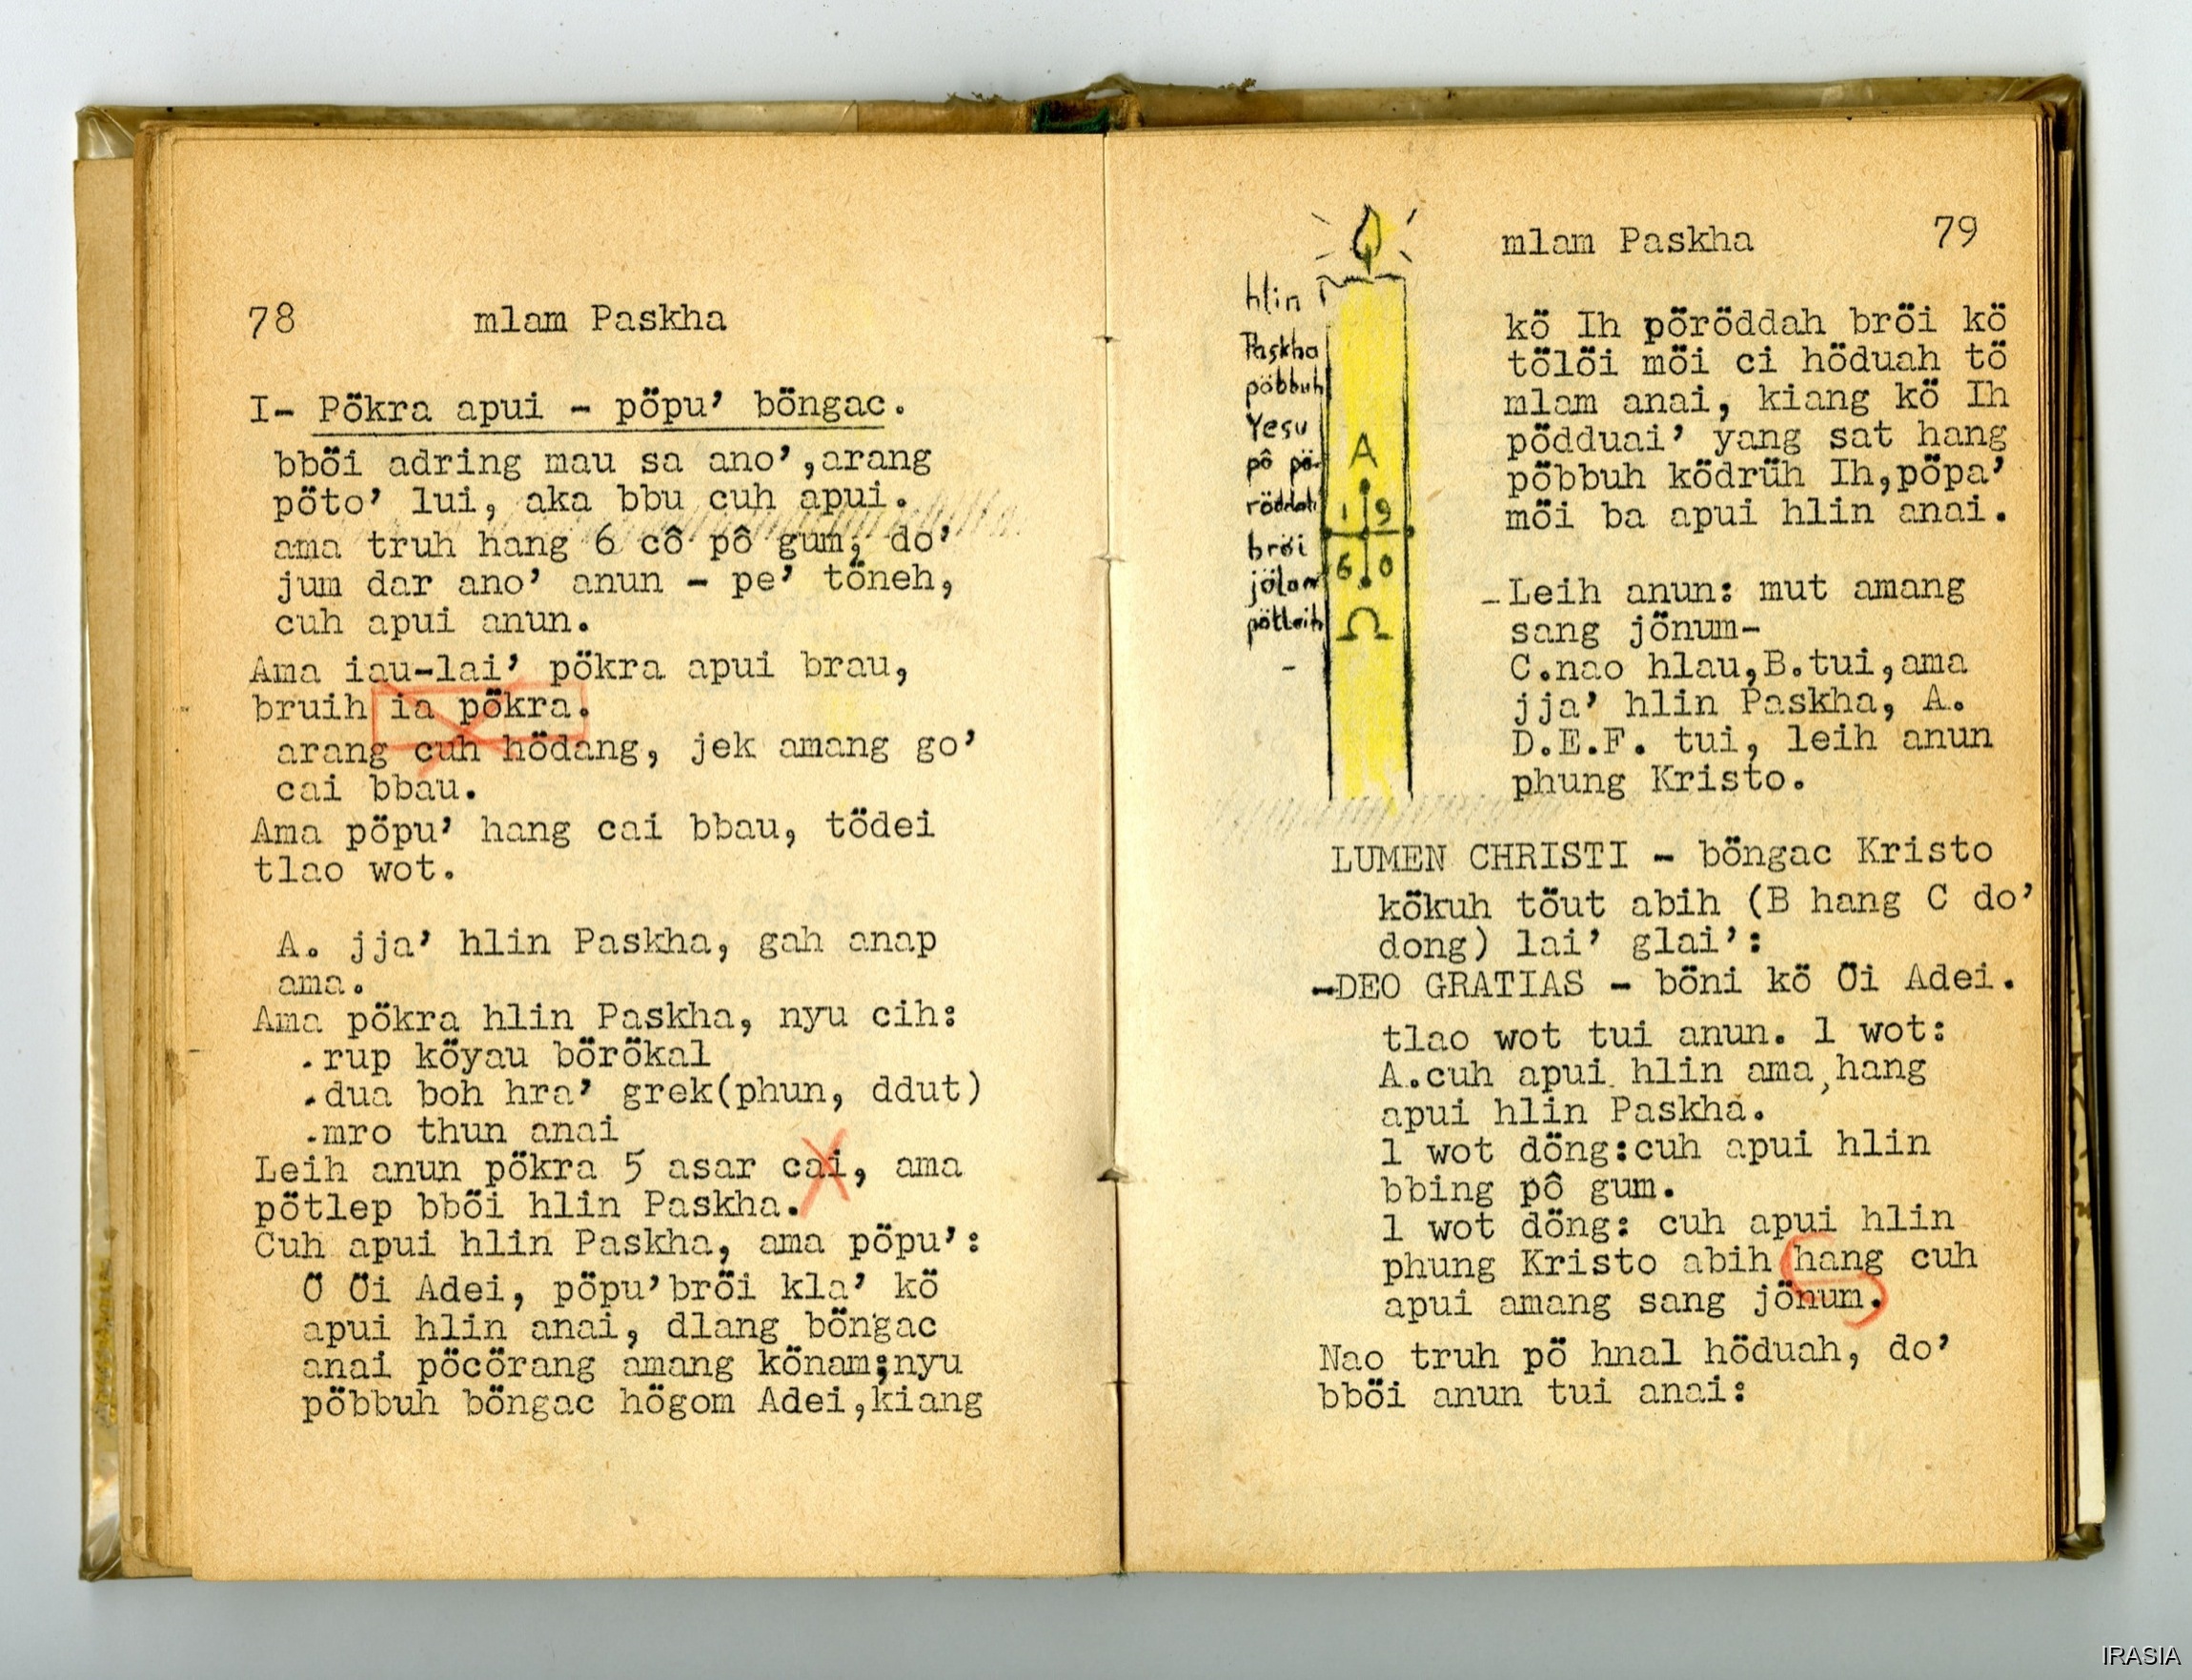 78 mlam Paskha
I- Pökra apui - pöpu' böngac.
bböi adring mau sa ano',arang
pöto' lui, aka bbu cuh apui.
ama truh hang 6 cô pô gum, do'
jum dar ano' anun - pe' töneh,
cuh apui anun.
Ama iau-lai' pökra apui brau,
bruih ia pökra.
arang cuh hödang, jek amang go'
cai bbau.
Ama pöpu' hang cai bbau, tödei
tlao wot.
A. jja' hlin Paskha, gah anap
ama.
Ama pökra hlin Paskha, nyu cih:
.rup köyau börökal
.dua boh hra' grek(phun, ddut)
.mro thun anai
Leih anun pökra 5 asar cai, ama
pötlep bböi hlin Paskha.
Cuh apui hlin Paskha, ama pöpu':
Ö Öi Adei, pöpu'bröi kla' kö
apui hlin anai, dlang böngac
anai pöcörang amang könam;nyu
pöbbuh böngac högom Adei,kiang
mlam Paskha 79
hlin
Paskha
pöbbuh
Yesu
pô pö-
röddah
bröi
jölan
pötleih
-
A
1 9
6 0
Ω
kö Ih pöröddah bröi kö
tölöi möi ci höduah tö
mlam anai, kiang kö Ih
pödduai' yang sat hang
pöbbuh ködrüh Ih,pöpa'
möi ba apui hlin anai.
-Leih anun: mut amang
sang jönum-
C.nao hlau,B.tui,ama
jja' hlin Paskha, A.
D.E.F. tui, leih anun
phung Kristo.
LUMEN CHRISTI - böngac Kristo
kökuh töut abih (B hang C do'
dong) lai' glai':
-DEO GRATIAS - böni kö Öi Adei.
tlao wot tui anun. 1 wot:
A.cuh apui hlin ama,hang
apui hlin Paskha.
1 wot döng:cuh apui hlin
bbing pô gum.
1 wot döng: cuh apui hlin
phung Kristo abih hang cuh
apui amang sang jönum.
Nao truh pö hnal höduah, do'
bböi anun tui anai:
IRASIA